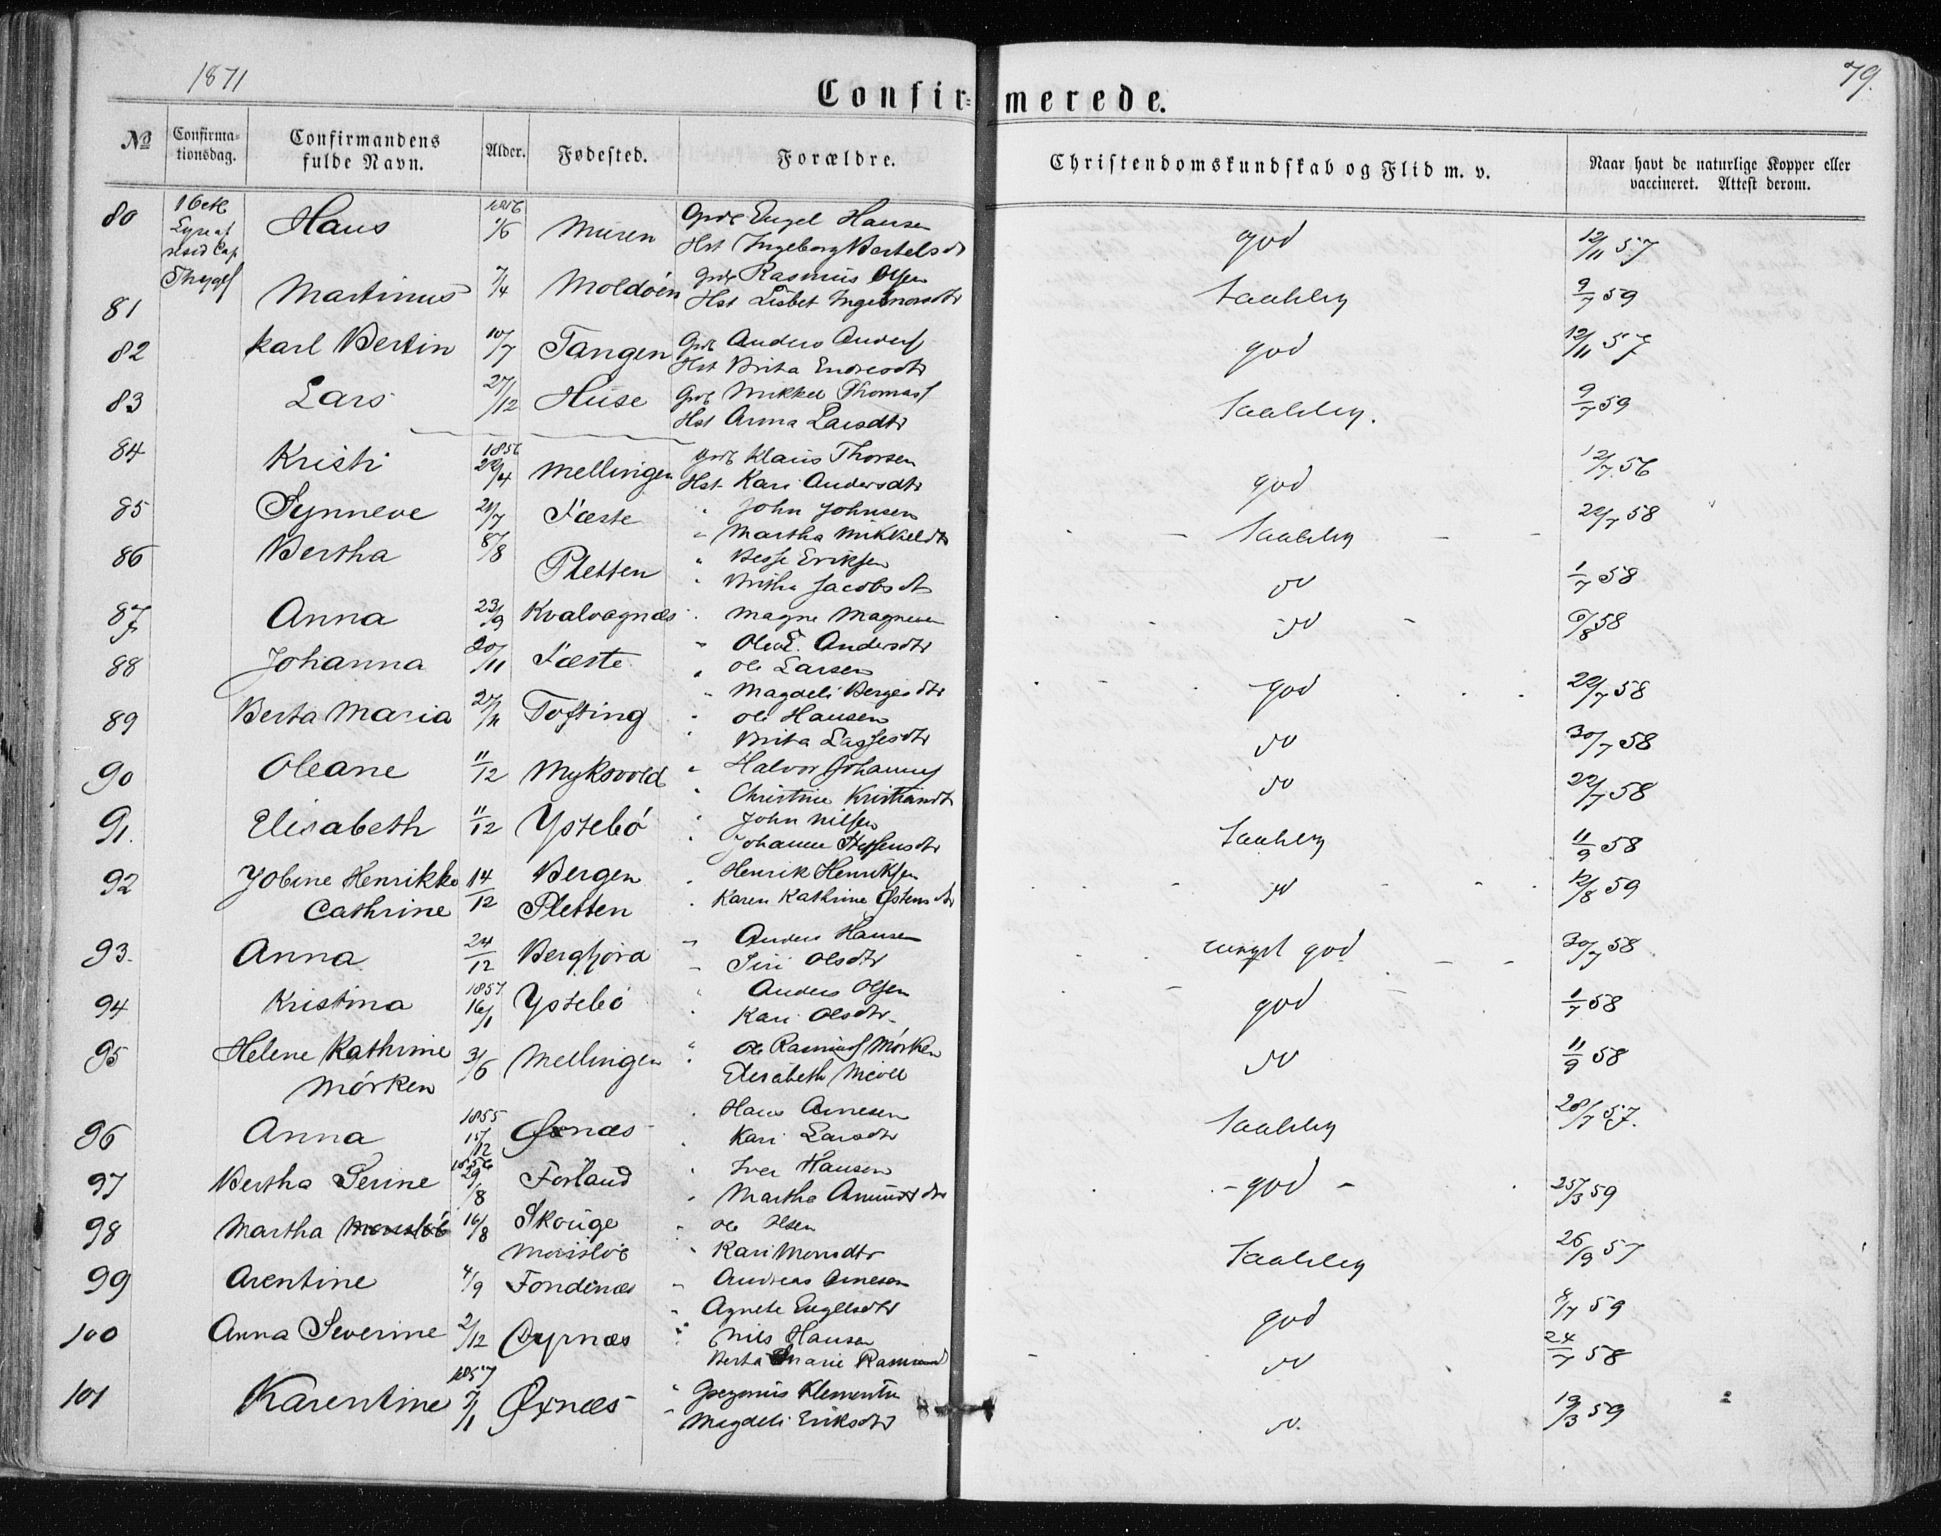 1871
79.
Confirmerede.
No Confirmationsdag. Confirmandens fulde Navn. Alder. Fødested. Forældre. Christendomskundskab og Flid m. v. Naar havt de naturlige Kopper eller vaccineret. Attest derom.
80 16 Hans 1856 1/6 Muren Grdb Engel Hansen god 12/11 57
Hst Ingeborg Bertelsdt
81 Martinus 7/4 Moldöen Grdb Rasmus Olsen 9/7 59
Hst Lisbet
82 Karl Bertin 10/7 Tangen Grdb Anders Anders god 12/11 57
Hst Brita Endresdtr
83 Lars 27/12 Huse Grdb Mikkel Thomas 9/7 59
Hst Anna Larsdtr
84 Kristi 1856 28/4 Mellingen Grdb Klaus Thorsen god 12/7 56
Hst Kari Andersdtr
85 Synneve 21/7 Fæste " John Johnsen 22/7 58
" Martha Mikkeldtr
86 Bertha /8 Pletten " Besse Eriksen do 1/7 58
" Britha Jacobsdt
87 Anna 23/9 Kvalvagnæs " Magne Magnesen do 6/8 58
" Andersdtr
88 Johanna 20/11 Fæste " Ole Larsen god 22/7 58
" Magdeli Bergesdtr
89 Berta Maria 27/11 Tofting " Ole Hansen do 30/7 58
" Brita Lassesdtr
90 Oleane 11/12 Myksvold " Halvor Johannes do 22/7 58
" Christine Kristiansdtr
91. Elisabeth 11/12 Ystebö " John Nilsen 11/9 58
" Johanne Steffensdtr
92 Jobine Henrikke 14/12 Bergen " Henrik Henriksen do 12/8 59
Cathrine Pletten " Karen Kathrine Østensdtr
93. Anna 24/12 Bergfjord " Anders Hansen god 30/7 58
" Siri Olsdtr
94 Kristina 1857 16/1 Ystebö " Anders Olsen god 1/7 58
" Kari Olsdtr
95 Helene Kathrine 31/6 Mellingen " Ole Rasmus Mörken do 11/9 58
Mörken Elisabeth Nicoll
96 Anna 1855 15/12 Øxnæs " Hans Arnesen 28/7 57.
" Kari Larsdtr
97 Bertha Serine 1856 29/8 Forland " Iver Hansen - god - 25/3 59
" Martha Amundsdtr
98 Martha 16/8 Skouge " Ole Olsen 26/9 57
" Kari Monsdtr
99 Arentine 4/9 Fondenæs " Andreas Arnesen god 8/7 59
" Agnete Engelsdtr
100 Anna Severine 2/12 Oyrnæs " Nils Hansen do 24/7 58
Berta Marie
101 Karentine 1857 7/1 Øxnæs " Gregorius do. 19/3 59
" Magdeli Eriksdtr